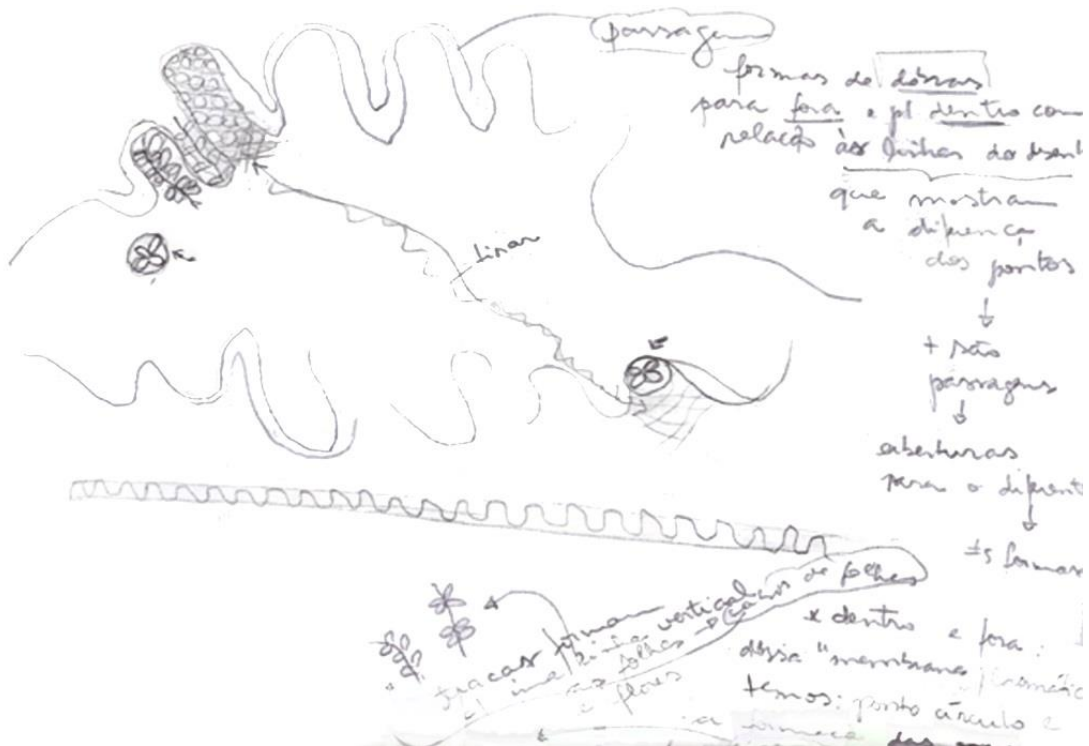 passagem
formas de dobras
para fora e p/ dentro com
relação às linhas do desenh
que mostram
a diferença
dos pontos
↓
+ são
passagens
↓
aberturas
para o diferent
↓
≠s formas
linar
traças formam
uma linha vertical
as folhas → de folhas
e flores
x dentro e fora
dessa "membrana
temos: ponto círculo e